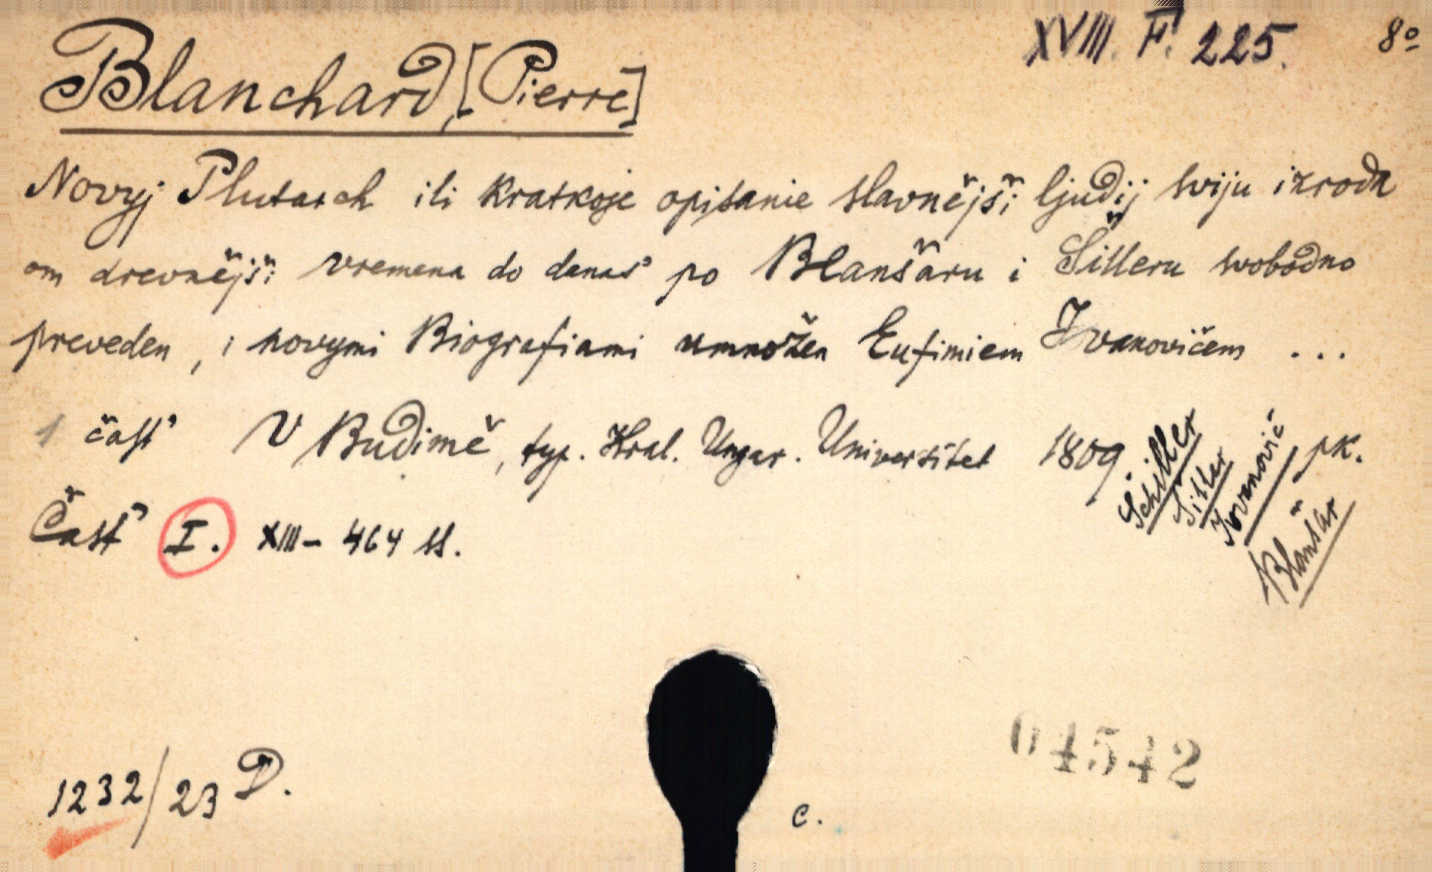 XVIII. F. 225. 8º
Blanchard, [Pierre]
Novyj Plutarch ili kratkoje opisanie slavnějši ljudij sviju izroda
om drevnějši vremena do danas' po Blanšaru i Šilleru svobodno
preveden, i novymi Biografiami umnožen Eufimiem Ivanovičem ...
1 čast' V Budimě, typ. Kral. Ungar. Universitet 1809. pk.
Schiller
Šiller
Ivanović
Blanšar
Čast' I. XIII – 464 ss.
04542
1232/23 D.
c.